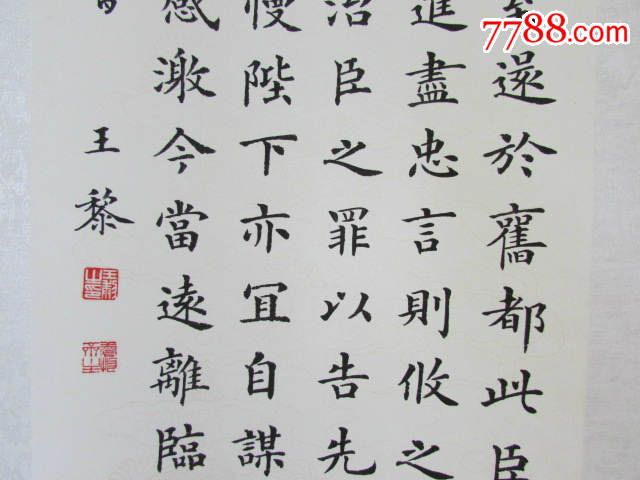 還於舊都此臣
進盡忠言則攸之
治臣之罪以告先
慢陛下亦宜自謀
感激今當遠離臨
王黎
7788.com